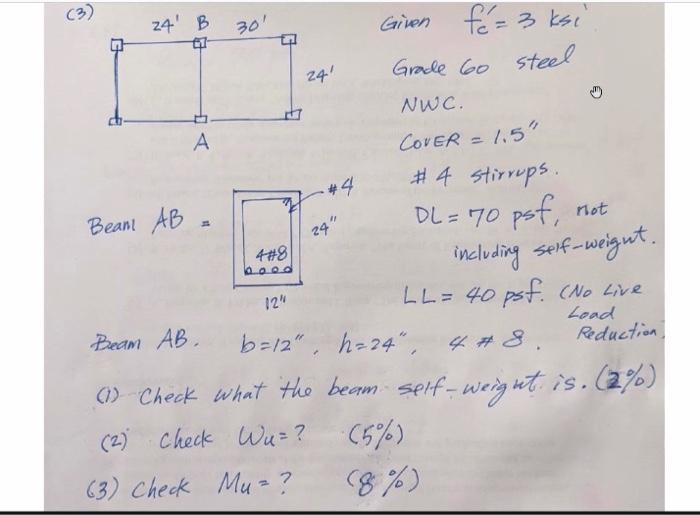 (3)
24' B 30'
24'
A
Given f'c = 3 ksi
Grade 60 steel
NWC.
COVER = 1.5"
#4 stirrups.
DL = 70 psf, not
including self-weight.
LL = 40 psf. (No Live
Load
Reduction)
Beam AB =
#4
24"
4#8
12"
Beam AB. b=12", h=24", 4 # 8.
(1) Check what the beam self-weight is. (2%)
(2) Check Wu=? (5%)
(3) Check Mu=? (8%)